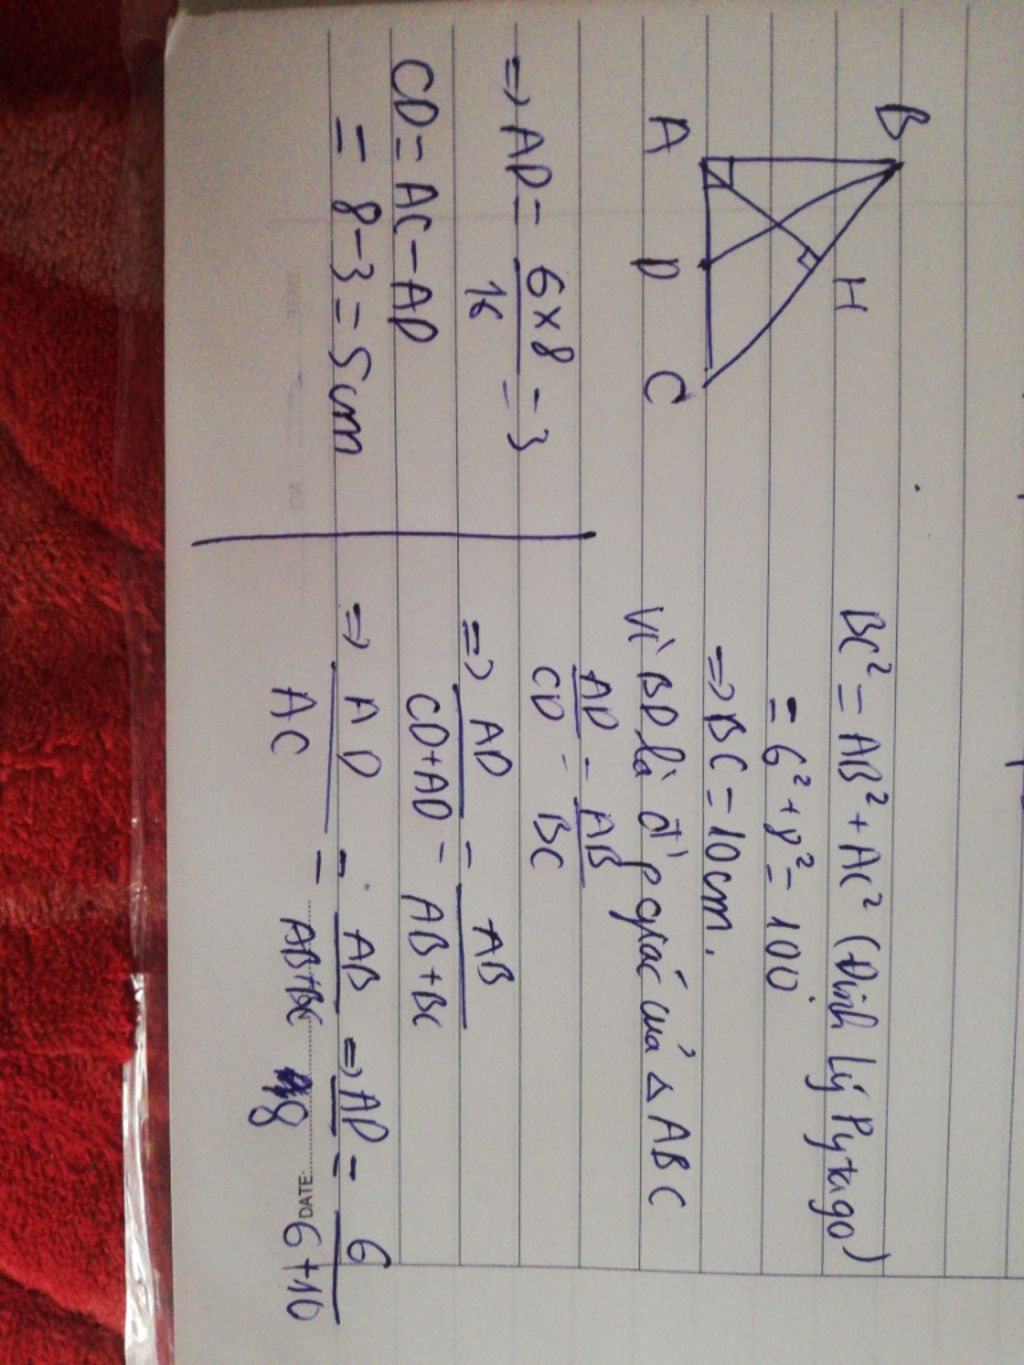 B
H
A D C
BC² = AB² + AC² (Định lý Pytago)
= 6² + 8² = 100
=> BC = 10cm.
Vì BD là đ' pgiác của △ ABC
AD/CD = AB/BC
=> AD/CD+AD = AB/AB+BC
=> AD/AC = AB/AB+BC => AD/8 = 6/6+10
=> AD = 6x8/16 = 3
CD = AC - AD
= 8-3 = 5cm
DATE: